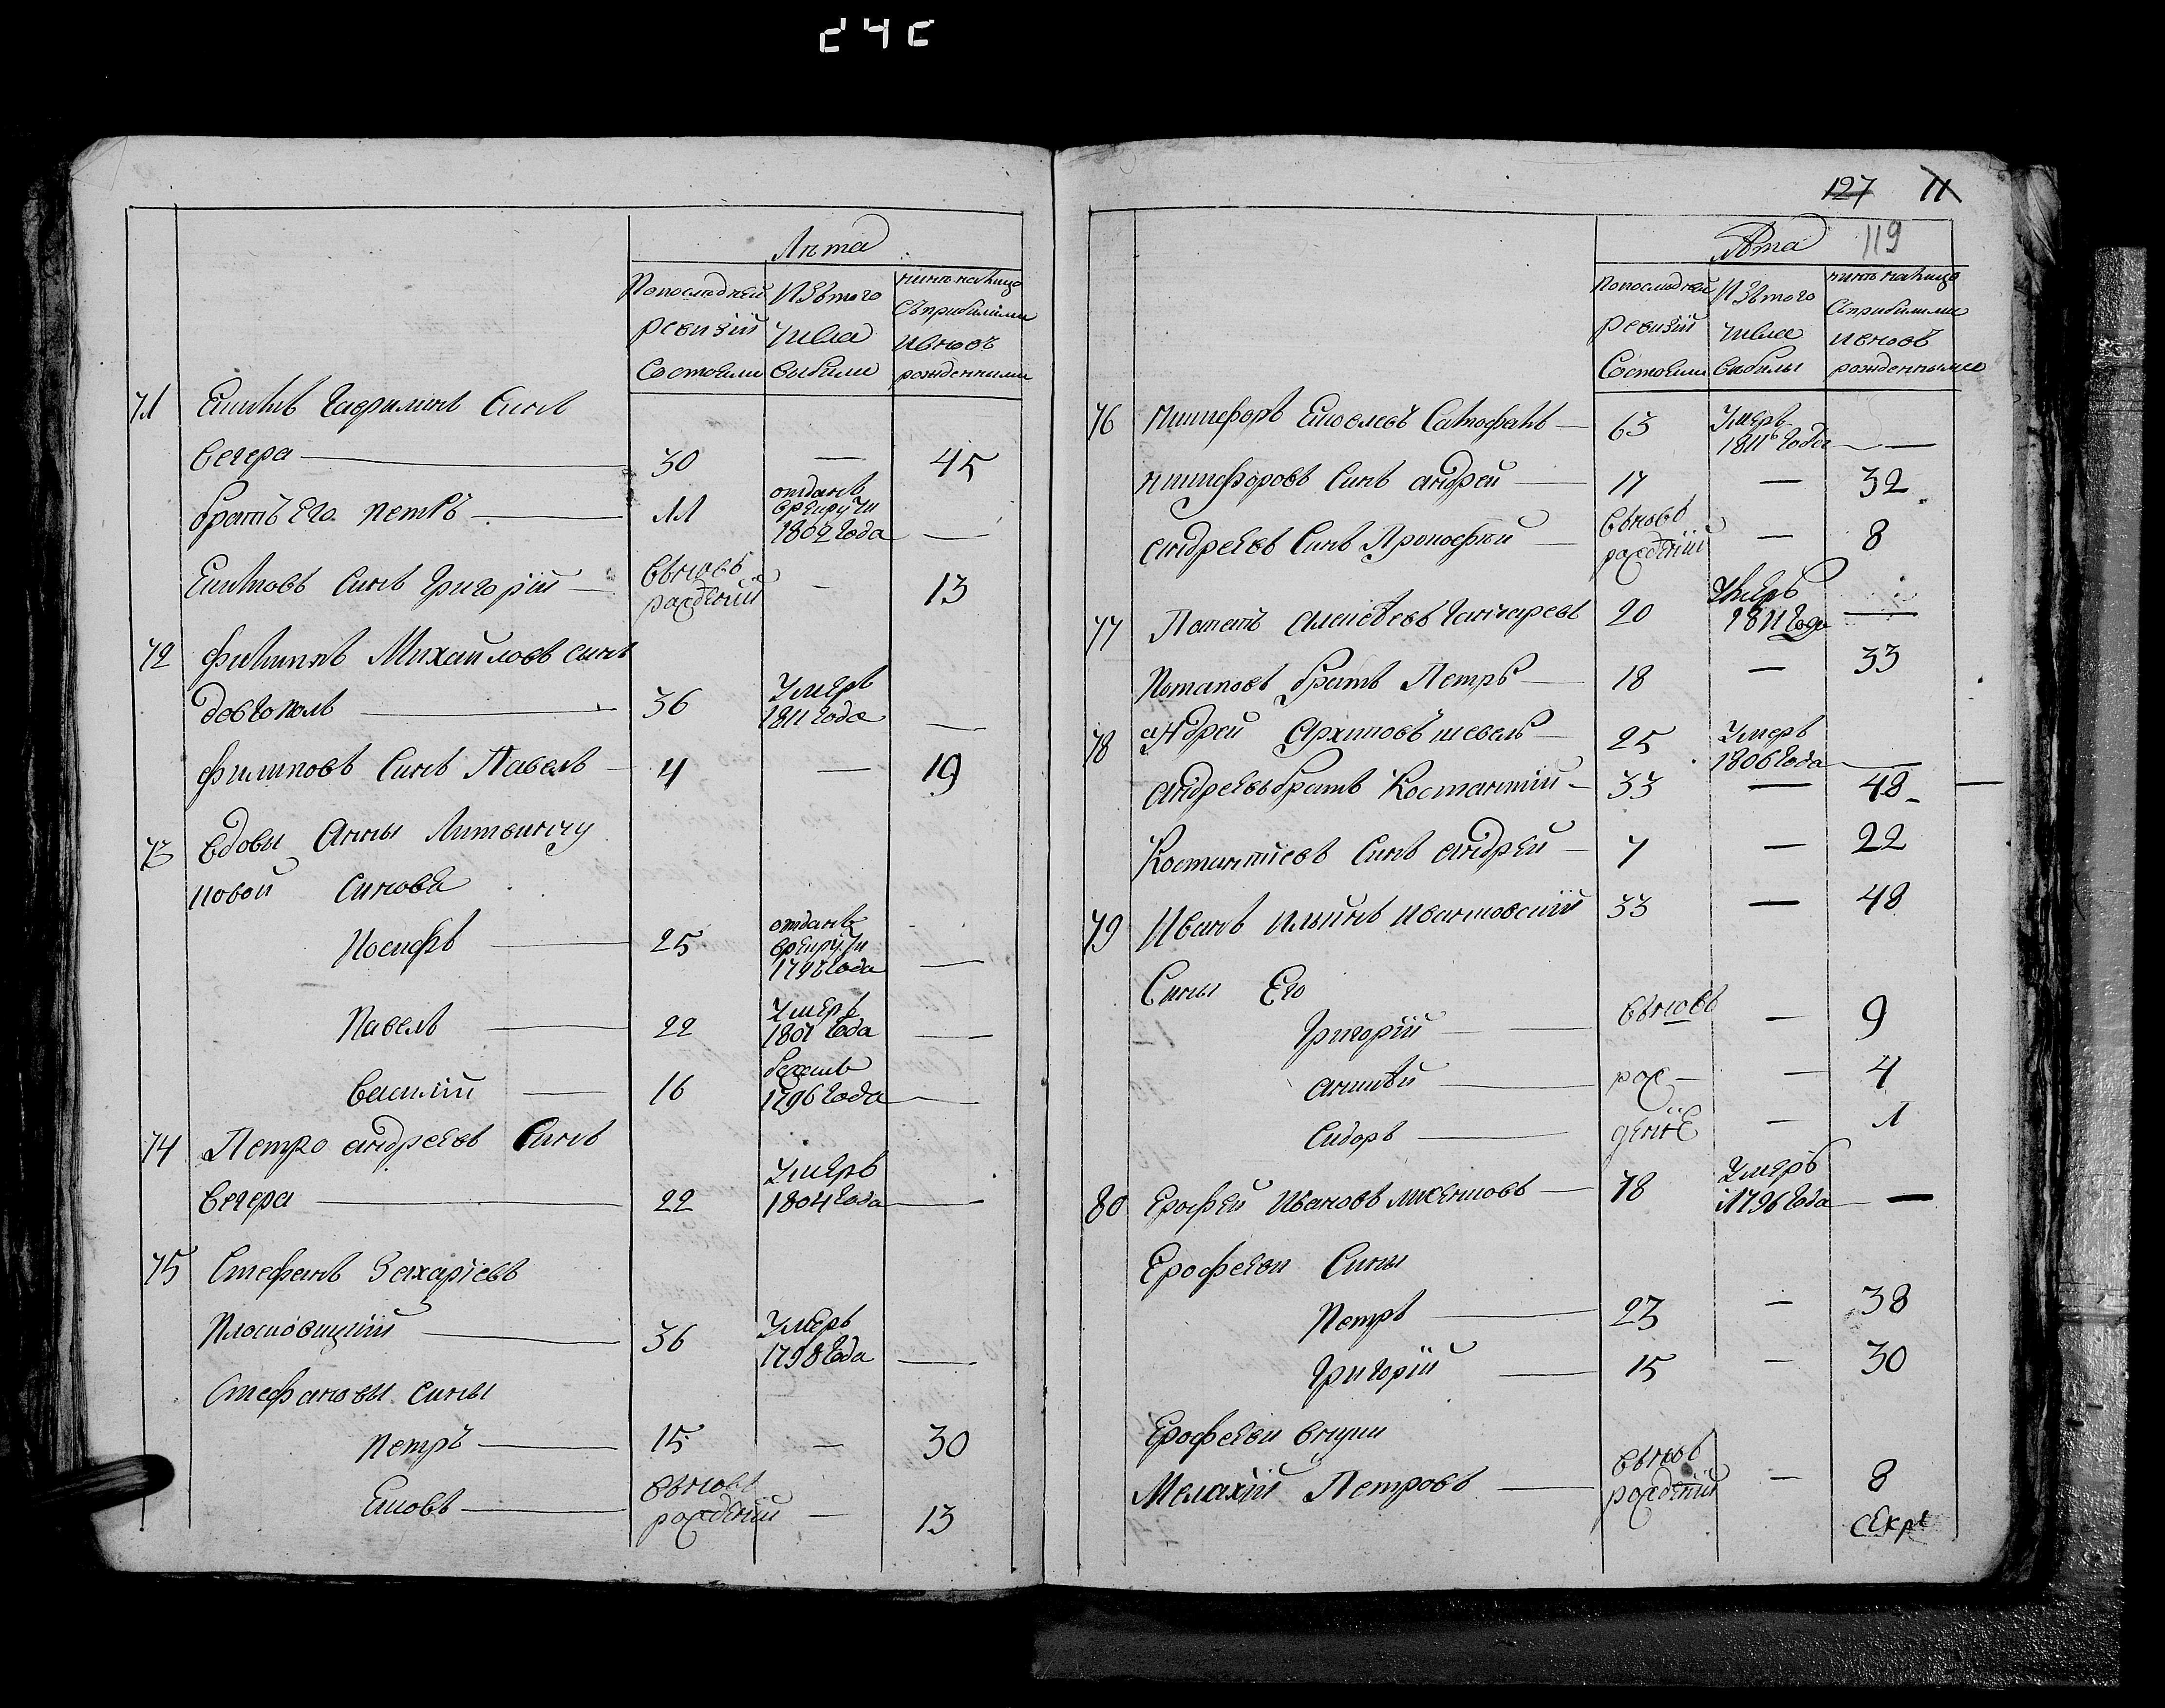 Лета
По последней
ревизiи
состояли
Изъ того
числа
выбыли
ныне на лицо
съ прибылыми
и вновъ
рожденными
71
Гаврилинъ синъ
вечера — 30 — 45
братъ его петръ — 11
отданъ
в рекруты
1802 года —
синъ григорiй —
вновь
рожденый
— 13
72 филипъ Михайловъ синъ
довгополъ — 36
Умеръ
1811 года —
филиповъ синъ Павелъ — 4 — 19
73 вдовы Анны Литвинчу
ковой синовя
Иосифъ — 25
отданъ
в рекруты
года —
Павелъ — 22
Умеръ
1801 года —
василiй — 16
бежалъ
1796 года —
74 Петро андреевъ синъ
вечера — 22
Умеръ
1804 года —
75 Стефанъ Захарiевъ
— 36
Умеръ
1798 года —
Стефановы сины
петръ — 15 — 30
Яковъ —
вновь
рожденый
— 13
127 11
119
Лета
По последней
ревизiи
состояли
Изъ того
числа
выбылы
ныне на лицо
съ прибылими
и вновъ
рожденнымы
76 никифоръ Яковлевъ — 63
Умеръ
1811 года —
никифоровъ синъ андрей — 17 — 32
андреевъ синъ Прокофiй —
вновь
рожденiй
— 8
77 Потапъ Алексеевъ Ганчаревъ 20
Умеръ
1811 года —
Потаповъ братъ Петръ — 18 — 33
78 андрей Архиповъ шевель — 25
Умеръ
1806 года —
андреевъ братъ Костантiй — 33 — 48
Костантiевъ синъ андрей — 7 — 22
79 Иванъ Ильинъ 33 — 48
Сины Его
Григорiй — вновь — 9
— рож — 4
Сидоръ — денiе — 1
80 Ерофей Ивановъ — 78
Умеръ
1796 года —
Ерофеевы Сины
Петръ — 23 — 38
Григорiй — 15 — 30
Ерофеевы внуки
Малахiй Петровъ —
вновь
рожденiй
— 8